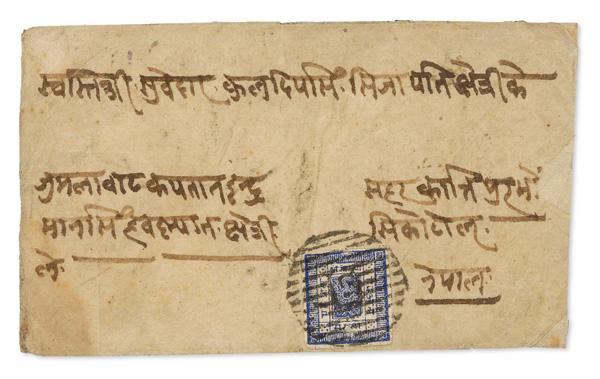 स्वस्तिश्री सुवेदार कुलदिपसिं सिजापति क्षेत्री के
जुमलावाट कपतान इन्द्र
मानसिं क्षेत्री
ले
सहर कान्तिपुरमो
सिकोटोल
नेपाल